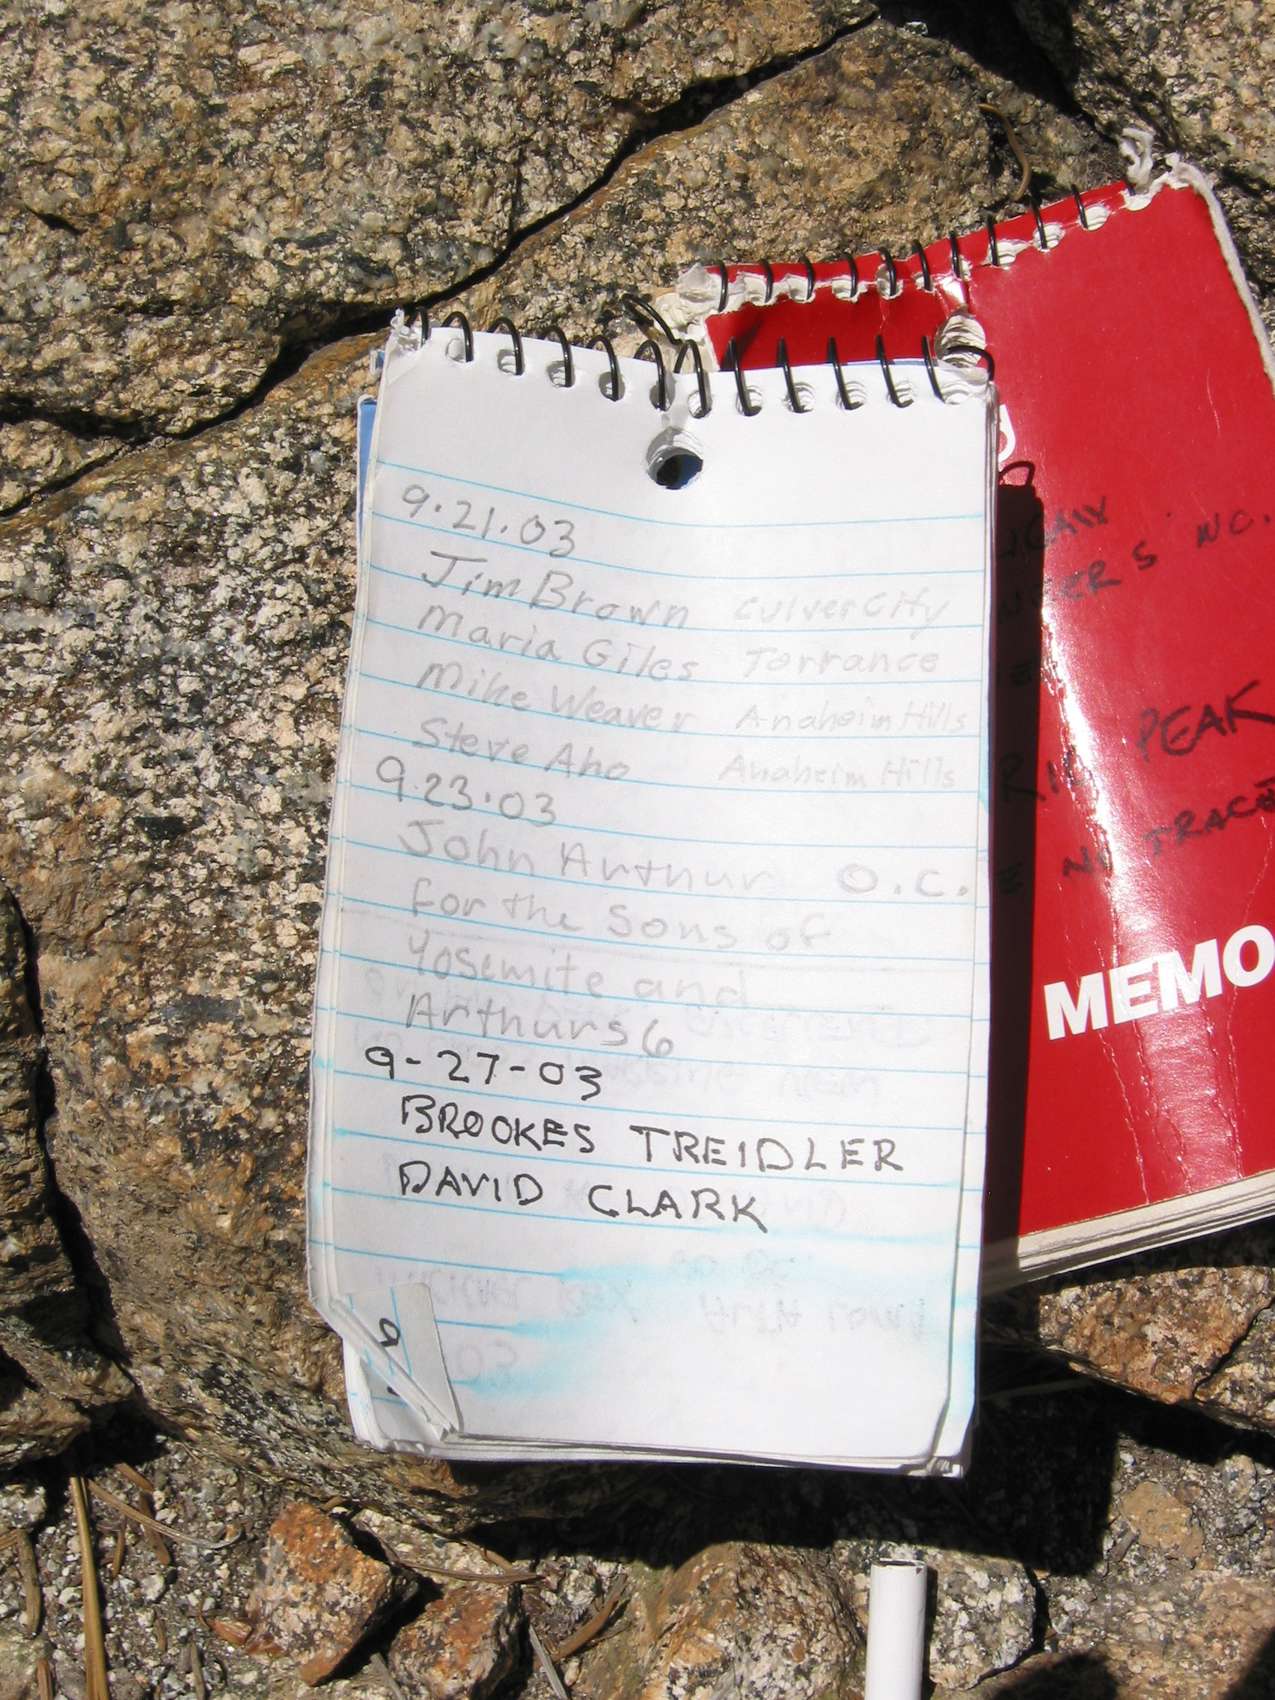 9.21.03
Jim Brown Culver City
Maria Giles Torrance
Mike Weaver Anaheim Hills
Steve Aho Anaheim Hills
9.23.03
John Arthur O.C.
for the Sons of
Yosemite and
Arthurs 6
9-27-03
BROOKES TREIDLER
DAVID CLARK
INC.
PEAK
MEMO